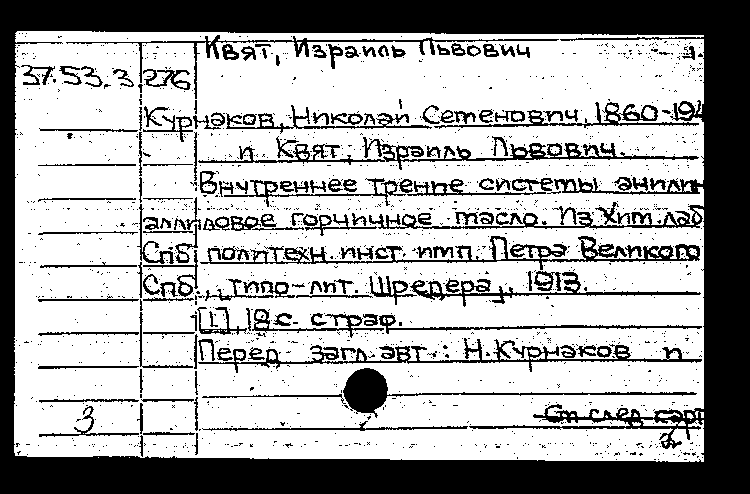 Квят, Израиль Львович 1.
37.53.3.276
Курнаков, Николай Семенович, 1860-194
и Квят, Израиль Львович.
Внутреннее трение системы анилин
аллиловое горчичное масло. Из Хим. лаб
Спб политехн. инст. имп. Петра Великого
Спб., „типо-лит. Шредера„, 1913.
[1], 18 с. страф.
Перед загл. авт.: Н. Курнаков и
3 См след карт